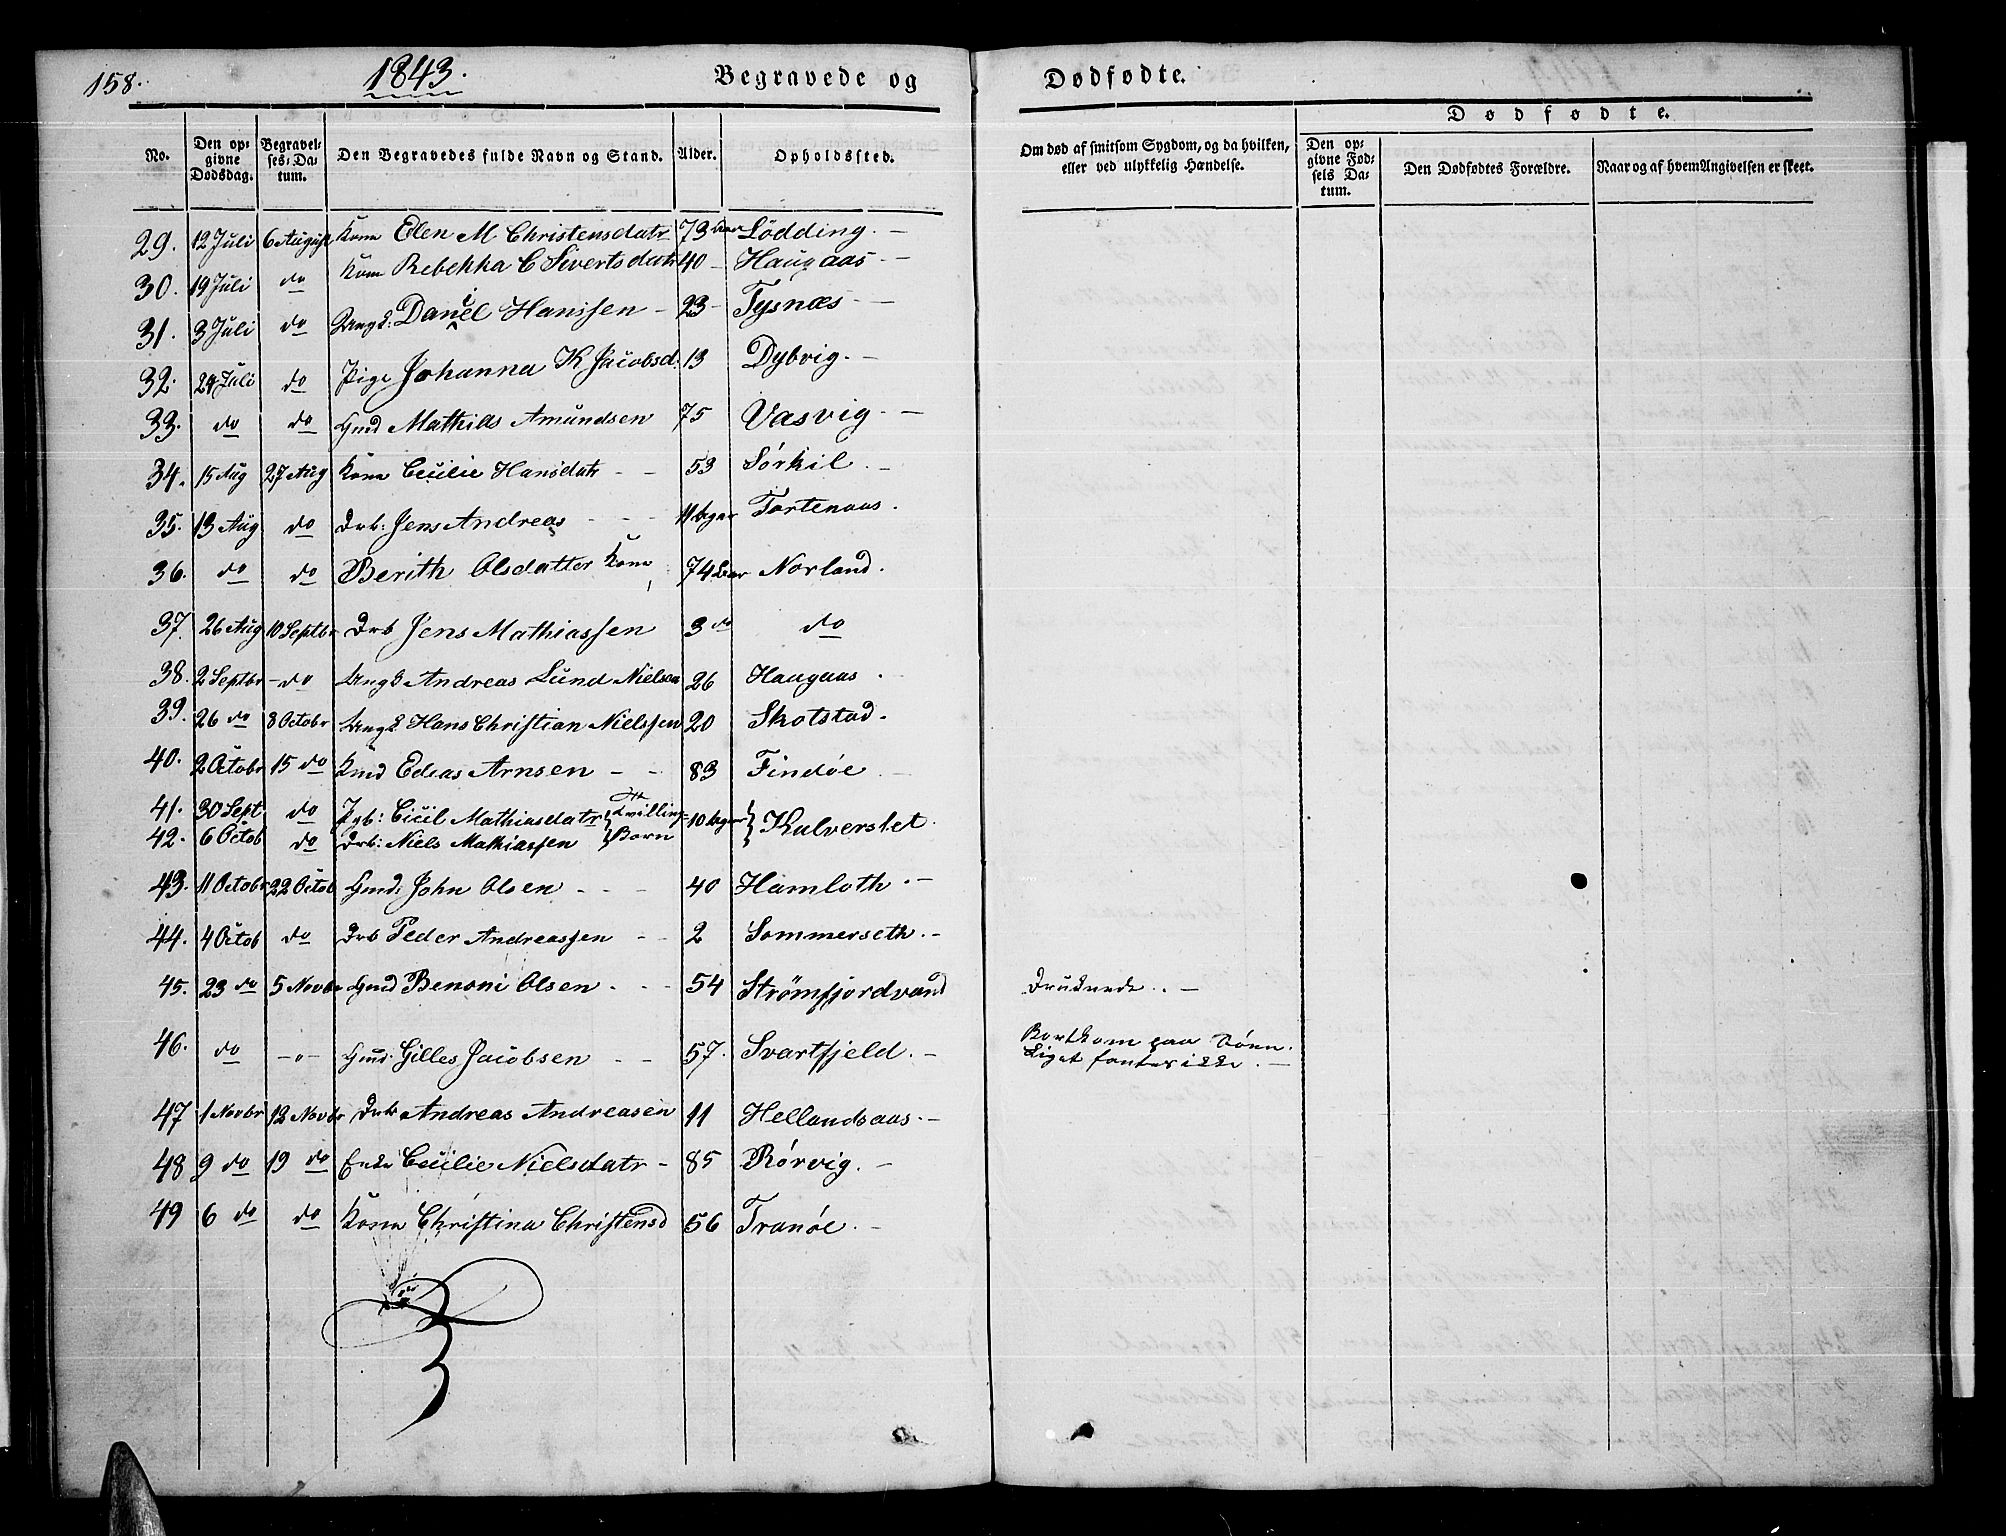 158.
1843.
Begravede og
Dødfødte.
No.
Den op-
givne
Dødsdag.
Begravel-
ses-Da-
tum.
Den Begravedes fulde Navn og Stand.
Alder.
Opholdssted.
Om død af smitsom Sygdom, og da hvilken,
eller ved ulykkelig Hændelse.
Dødfødte.
Den op-
givne Fød-
sels Da-
tum.
Den Dødfødtes Forældre.
Naar og af hvem Angivelsen er skeet.
29. 12 Juli 6 August Kone Elen M Christensdatr 73 Aar Lödding. -
30. 19 Juli do Kone Rebekka C Sivertsdatr 40 - Haugaas - -
31. 3 Juli do Ungk: Daniel Hanssen - 23 - Tysnæs - -
32. 24 Juli do Pige Johanna K Jacobsd: 13 Dybvig. -
33. do do Gmd Mathias Amundsen 75 Vasvig. -
34. 15 Aug 27 Aug Kone Cecilie Hansdatr - - 53 Sörkil. -
35. 13 Aug do Drb: Jens Andreas - - - 11 Uger Tortenaas.
36. do do Berith Olsdatter Kone 74 Aar Norland.
37. 26 Aug 10 Septbr Drb Jens Mathiassen 3 do do
38. 2 Septbr - do Ungk Andreas Lund Nielsen 26 Haugaas.
39. 26 do 8 Octobr Ungk Hans Christian Nielssen 20 Skotstad.
40. 2 Octobr 15 do Kmd Edias Arnsen - - 83 Findöe. -
41. 30 Sept do Pgb: Cicil Mathiasdatr } Tvilling- 10 Uger } Kalverslet.
42. 6 Octob do Drb: Niels Mathiassen } Børn
43. 11 Octobr 22 Octob Gmd: John Olsen - - - 40 Hamloth. -
44. 4 Octob do Drb Peder Andreassen - - 2 Sommerseth. -
45. 23 do 5 Novbr Gmd Benoni Olsen - - - 54 Strømfjordvand Druknede. -
46. do - " - Gmd: Gilles Jacobsen - - 57. Svartfjeld. - Bortkom paa Söen.
Liget fantes ikke. -
47 1 Novbr 12 Novbr Drb Andreas Andreasen 11 Hellandsaas. -
48 9 do 19 do Enke Cecilie Nielsdatr - 85 Rörvig. -
49 6 do do Kone Christina Christensd 56 Tranöe. -